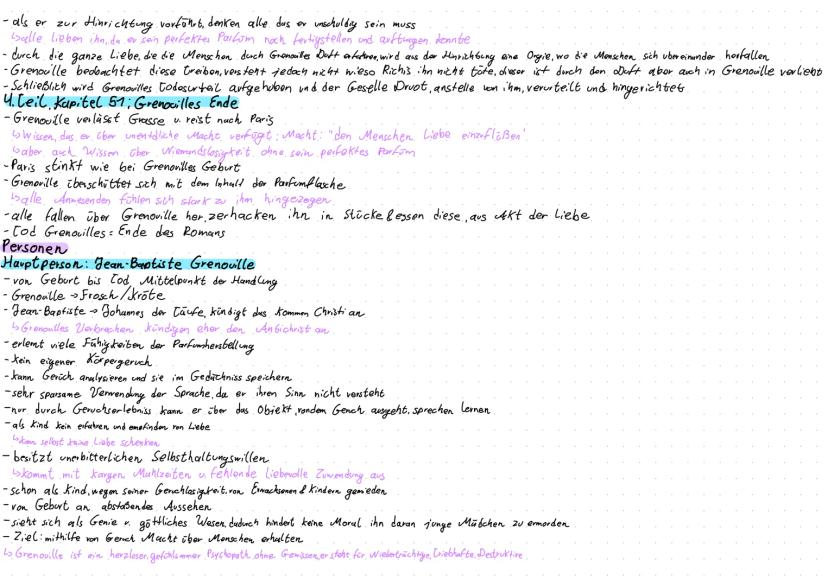 - als er zur Hinrichtung vorführt, denken alle das er unschuldig sein muss
↳ alle lieben ihn, da er sein perfektes Parfüm noch fertigstellen und auftragen konnte
- durch die ganze Liebe, die die Menschen duch Grenouilles Duft erfahren, wird aus der Hinrichtung eine Orgie, wo die Menschen sich übereinander herfallen
- Grenouille beobachtet diese Treiben, versteht jedoch nicht wieso Richis ihn nicht töte, dieser ist durch den Duft aber auch in Grenouille verliebt
- Schließlich wird Grenouilles Todesurteil aufgehoben und der Geselle Druot, anstelle von ihm, verurteilt und hingerichtet
4. Teil, Kapitel 51; Grenouilles Ende
- Grenouille verlässt Grasse u. reist nach Paris
↳ Wissen, das er über unendliche Macht verfügt; Macht: "den Menschen Liebe einzuflößen"
↳ aber auch Wissen über Niemandslosigkeit ohne sein perfektes Parfüm
- Paris stinkt wie bei Grenouilles Geburt
- Grenouille überschüttet sich mit dem Inhalt der Parfumflasche
↳ alle Anwesenden fühlen sich stark zu ihm hingezogen
- alle fallen über Grenouille her, zerhacken ihn in Stücke & essen diese, aus Akt der Liebe
- Tod Grenouilles = Ende des Romans
Personen
Hauptperson: Jean-Baptiste Grenouille
- von Geburt bis Tod Mittelpunkt der Handlung
- Grenouille → Frosch/Kröte
- Jean-Baptiste → Johannes der Täufe, kündigt das Kommen Christi an
↳ Grenouilles Verbrechen kündigen eher den Antichrist an
- erlernt viele Fähigkeiten der Parfümherstellung
- kein eigener Körpergeruch
- kann Gerüch analysieren und sie im Gedächtniss speichern
- sehr sparsame Verwendung der Sprache, da er ihren Sinn nicht versteht
- nur durch Geruchserlebniss kann er über das Objekt, vondem Geruch ausgeht, sprechen lernen
- als Kind kein erfahren und empfinden von Liebe
↳ kann selbst keine Liebe schenken
- besitzt unerbitterlichen Selbsthaltungswillen
↳ kommt mit kargen Mahlzeiten u. fehlende liebevolle Zuwendung aus
- schon als Kind, wegen seiner Geruchlosigkeit, von Erwachsenen & Kindern gemieden
- von Geburt an abstoßendes Aussehen
- sieht sich als Genie u. göttliches Wesen, dadurch hindert keine Moral ihn daran junge Mädchen zu ermorden
- Ziel: mithilfe von Geruch Macht über Menschen erhalten
↳ Grenouille ist ein herzloser, gefühlsarmer Psychopath ohne Gewissen, er steht für Niederträchtige, triebhafte Destruktive